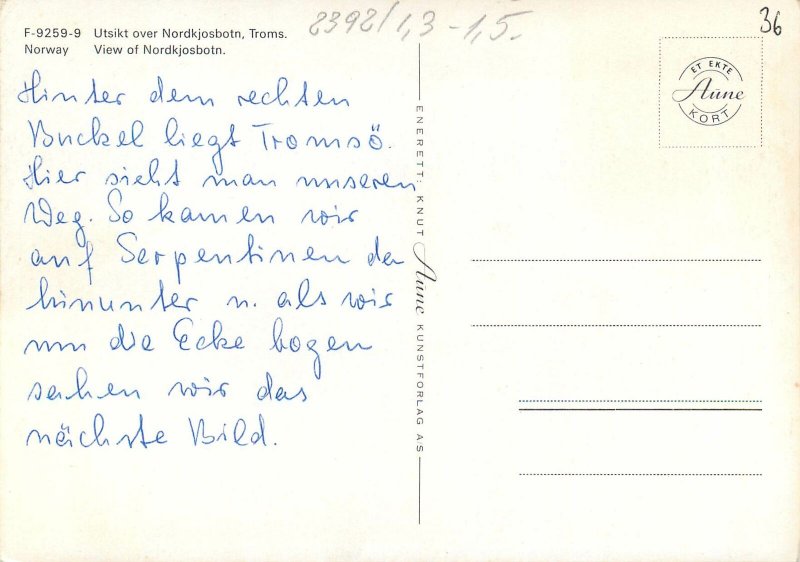 F-9259-9 Utsikt over Nordkjosbotn, Troms.
Norway View of Nordkjosbotn.
2392/1,3 -1,5.
36
ET EKTE
Aune
KORT
Hinter dem rechten
Buckel liegt Tromsö.
Hier sieht man unseren
Weg. So kamen wir
auf Serpentinen da
hinunter u. als wir
um die Ecke bogen
sahen wir das
nächste Bild.
ENERETT: KNUT Aune KUNSTFORLAG A/S